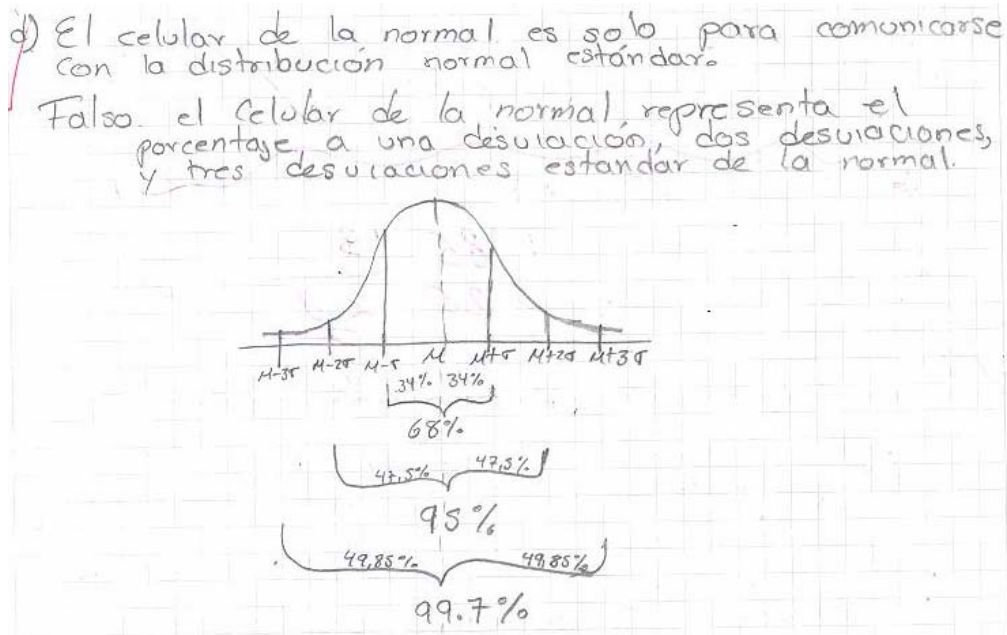 d) El celular de la normal es solo para comunicarse
con la distribución normal estándar.
Falso. el Celular de la normal, representa el
porcentaje a una desviación, dos desviaciones,
y tres desviaciones estandar de la normal.
M-3σ M-2σ M-σ M M+σ M+2σ M+3σ
34% 34%
68%
47,5% 47,5%
95%
49,85% 49,85%
99.7%